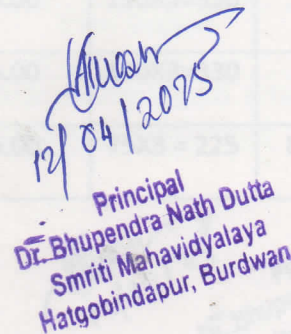 12/04/2025
Principal
Dr. Bhupendra Nath Dutta
Smriti Mahavidyalaya
Hatgobindapur, Burdwan